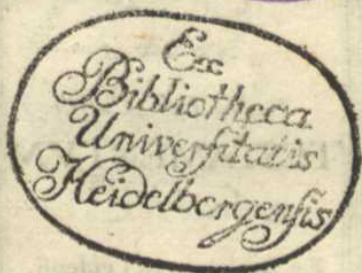 Ex
Bibliotheca
Universitatis
Heidelbergensis